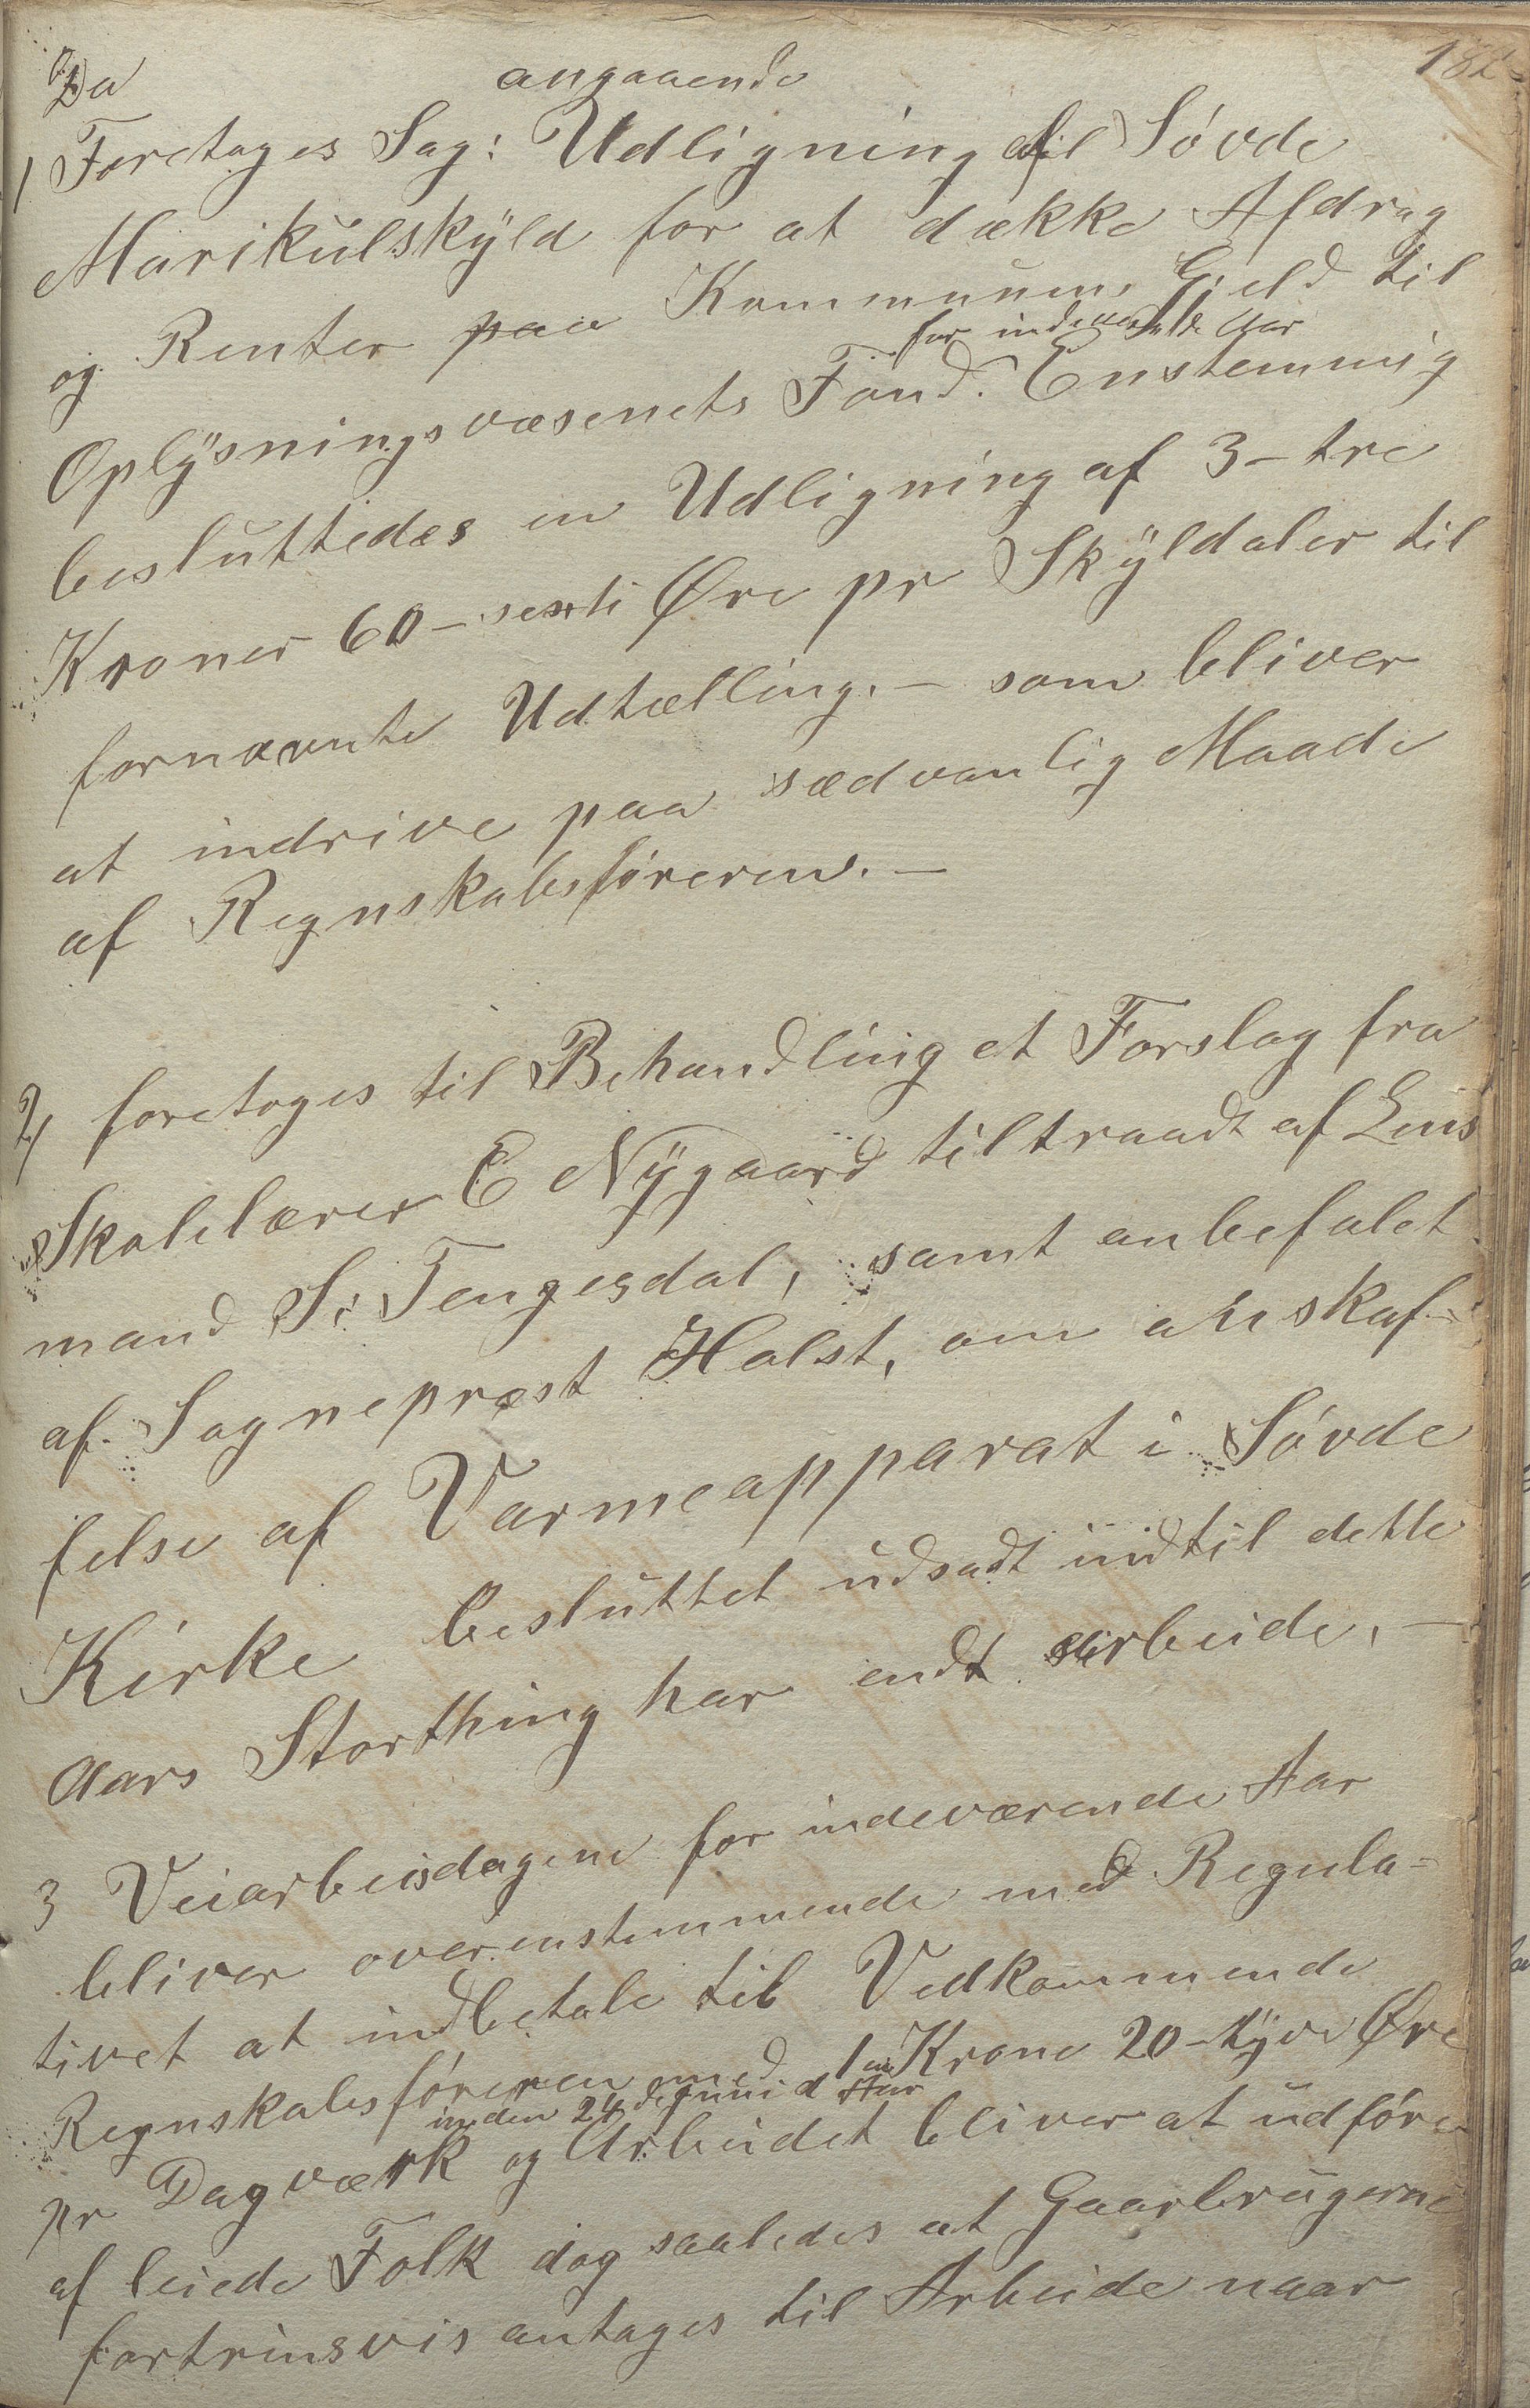 182
Da angaaende
1/ Foretages Sag: Udligning af Søvde
Marikulskyld for at dække Afdrag
og Renter paa Kommunens Gjeld til
for indeværende Aar
Oplysningsvæsenets Fond. Enstemmig
besluttedes en Udligning af 3 - tre
Kroner 60 - sexti Øre pr Skyldaler til
fornævnte Udtælling. - som bliver
at indrive paa sædvanlig Maade
af Regnskabsføreren. -
2/ foretoges til Behandling et Forslag fra
Skolelærer E Nygaard tiltraadt af Lens
mand S. Tengesdal, samt anbefalet
af Sognepræst Holst, om anskaf-
felse af Varmeapparat i Søvde
Kirke besluttet udsadt indtil dette
Aars Storthing har endt arbeide. -
3 Veiarbeisdagene for indeværende Aar
bliver overenstemmende med Regula-
tivet at indbetale til Vedkommende
Regnskabsføreren med 1 en Krone 20 - tyve Øre
inden 24de Juni d Aar
pr Dagværk og Arbeidet bliver at udføre
af leiede Folk dog saaledes at Gaarbrugerne
fortrinsvis antages til Arbeide naar